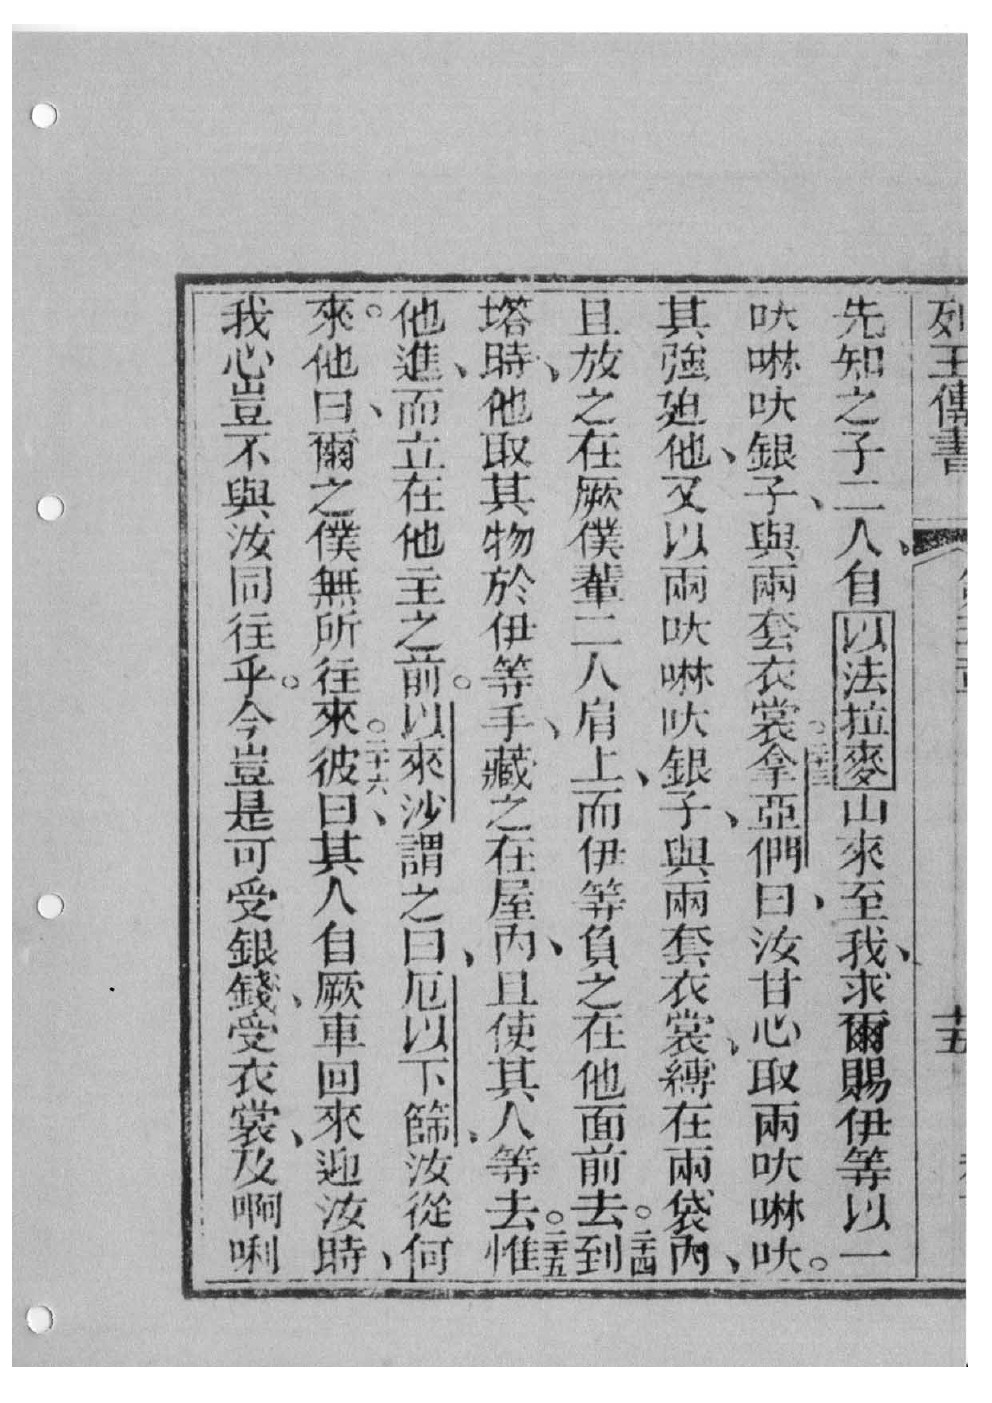 列王傳書 十五
先知之子二人、自以法拉麥山來至我、求爾賜伊等以一
吠啉吠銀子、與兩套衣裳。二十三拿亞們曰、汝甘心取兩吠啉吠。
其強廹他、又以兩吠啉吠銀子、與兩套衣裳、縛在兩袋內、
且放之在厥僕輩二人肩上、而伊等負之在他面前去。二十四到
塔時、他取其物於伊等手、藏之在屋內、且使其人等去。二十五惟
他進、而立在他主之前。以來沙謂之曰、厄以下篩、汝從何
來。他曰、爾之僕無所往來。二十六彼曰、其人自厥車回來迎汝時、
我心豈不與汝同往乎。今豈是可受銀錢、受衣裳、及啊唎